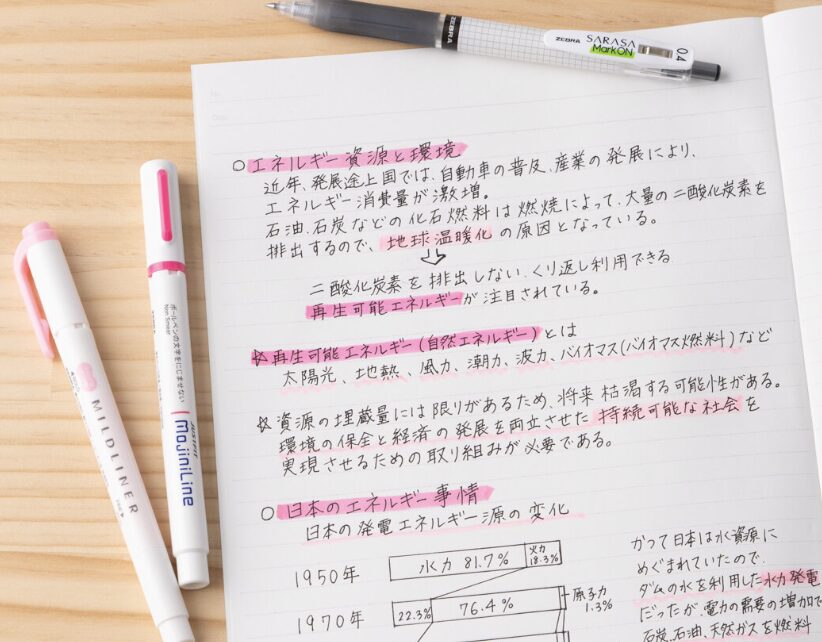 ZEBRA
ZEBRA
SARASA
MarkON
0.4
○エネルギー資源と環境
近年、発展途上国では、自動車の普及、産業の発展により、
エネルギー消費量が激増。
石油、石炭などの化石燃料は燃焼によって、大量の二酸化炭素を
排出するので、地球温暖化の原因となっている。
⇩
二酸化炭素を排出しない、くり返し利用できる
再生可能エネルギーが注目されている。
☆再生可能エネルギー(自然エネルギー)とは
太陽光、地熱、風力、潮力、波力、バイオマス(バイオマス燃料)など
☆資源の埋蔵量には限りがあるため、将来枯渇する可能性がある。
環境の保全と経済の発展を両立させた持続可能な社会を
実現させるための取り組みが必要である。
○日本のエネルギー事情
日本の発電エネルギー源の変化
1950年 水力 81.7% 火力 18.3%
1970年 22.3% 76.4% 原子力 1.3%
かつて日本は水資源に
めぐまれていたので、
ダムの水を利用した水力発電
だったが、電力の需要の増加で
石炭、石油、天然ガスを燃料
ボールペンの文字をにじませない
Non Smear
JUSTFIT
MojiniLine
MILDLINER